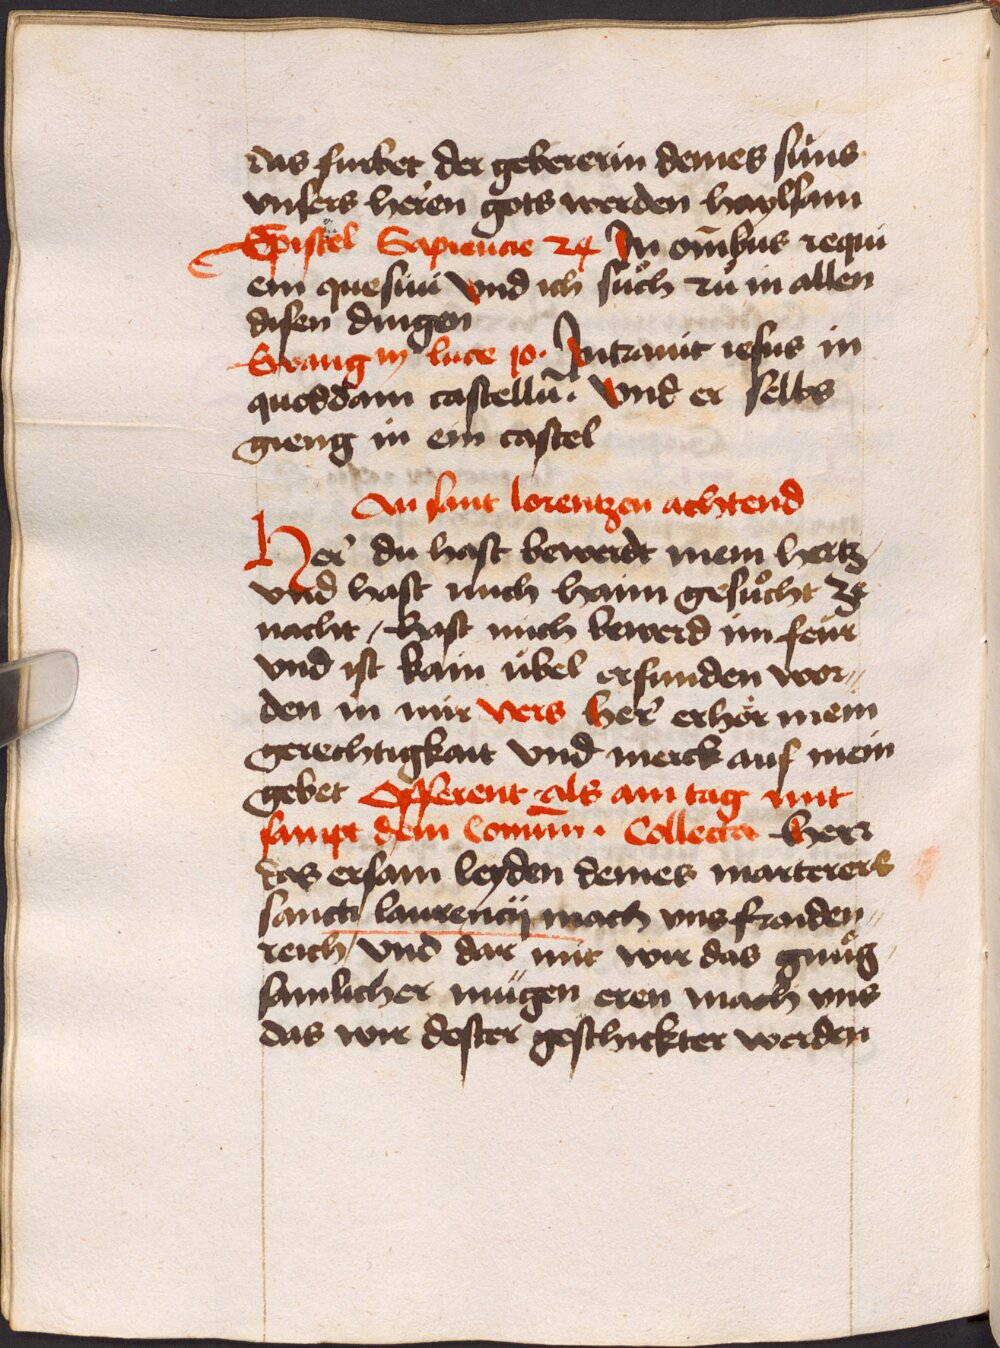 das furbet der gebererin deines suns
unsers herren gots werden haylsam
Epistel Sapiencie 24 In om̄ibus requi
em quesiui Vnd ich sůch rů in allen
disen dingen
Ewangȳ luce 10. Intrauit iesus in
quoddam castellū. Vnd er selbs
gieng in ein castel
An sant lorentzen achtend
Her du hast bewerdt mein hertz
vnd hast mich haim gesůcht ze
nacht / hast mich bewerd im feür
vnd ist kain übel erfunden wor//
den in mir Vers her erhör mein
gerechtigkait Vnd merck auf mein
gebet Offerent als am tag mit
sampt dem Comūn. Collecta herr
das ersam leyden deines marterers
sancti laurencij mach vns fraiden//
reich / Vnd dar mit wir das gnůg
samlicher mügen eren mach vns
das wir dester geschickter werden